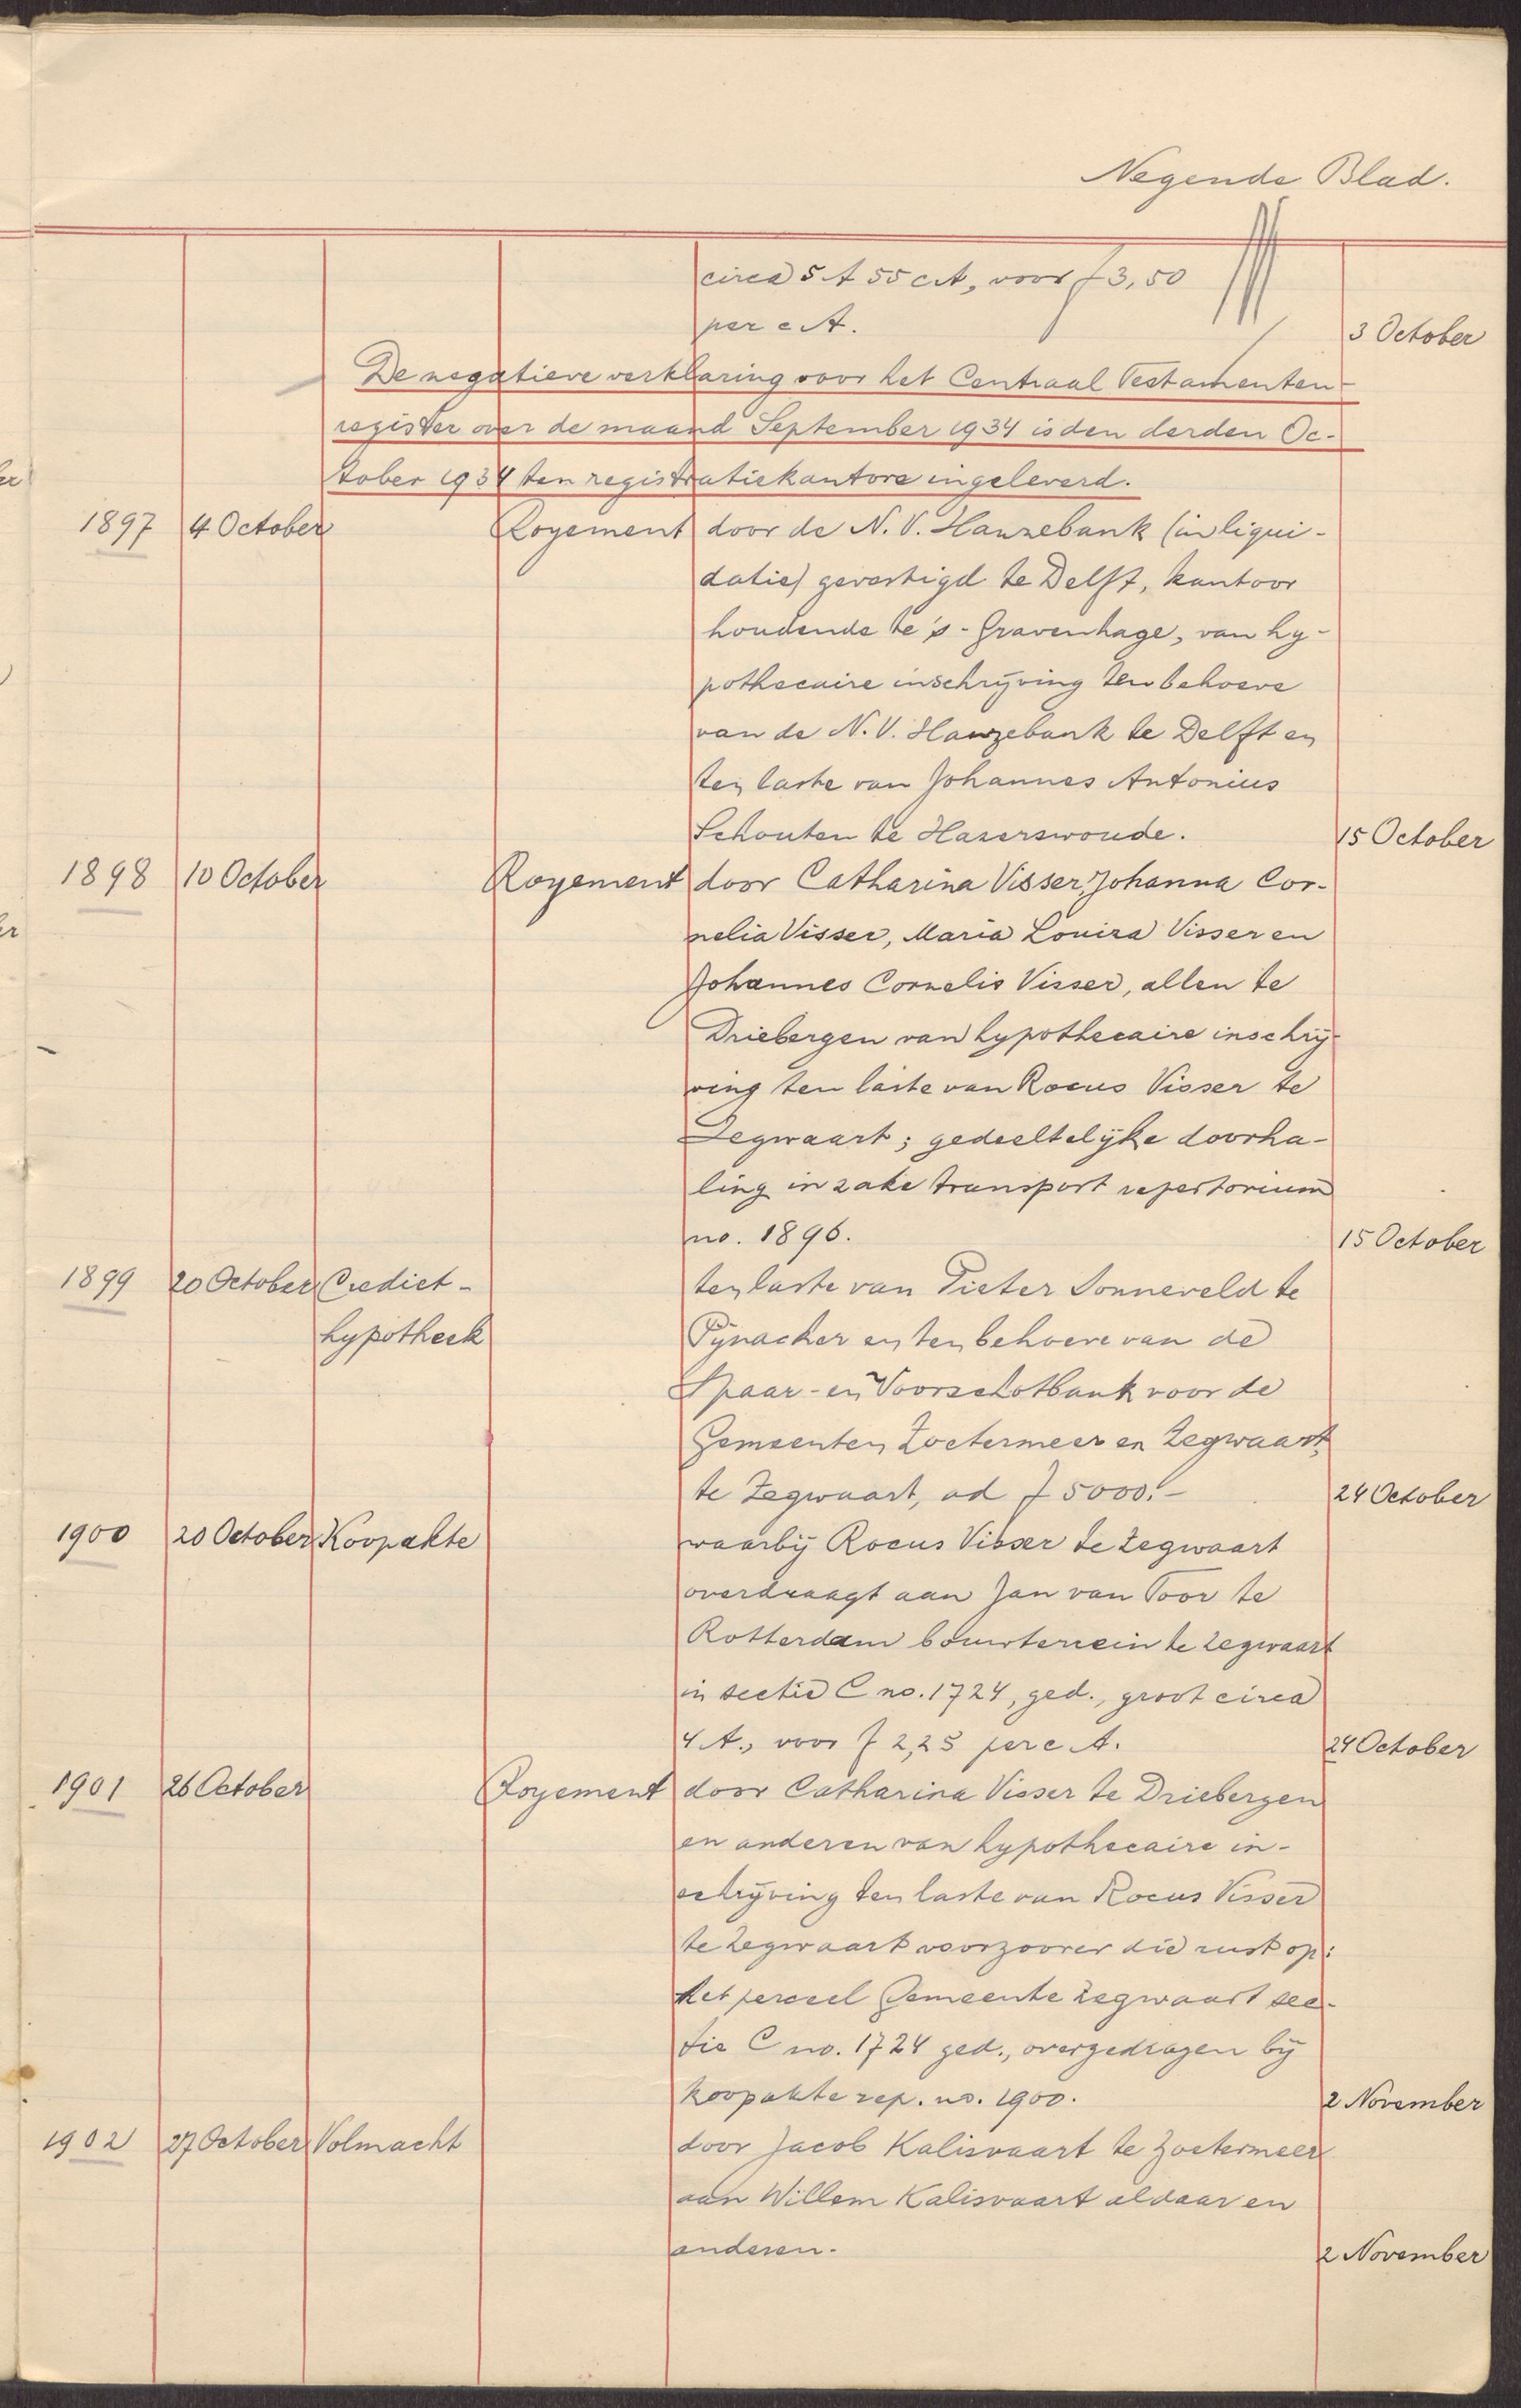 Negende Blad.
circa 5 A 55 cA, voor f 3,50
per cA.
3 October
De negatieve verklaring voor het Centraal Testamenten-
register over de maand September 1934 is den derden Oc-
tober 1934 ten registratiekantore ingeleverd.
1897 4 October Royement door de N.V. Hanzebank (in liqui-
datie) gevestigd te Delft, kantoor
houdende te 's-Gravenhage, van hy-
pothecaire inschrijving ten behoeve
van de N.V. Hanzebank te Delft en
ten laste van Johannes Antonius
Schouten te Hazerswoude. 15 October
1898 10 October Royement door Catharina Visser, Johanna Cor-
nelia Visser, Maria Louisa Visser en
Johannes Cornelis Visser, allen te
Driebergen van hypothecaire inschrij-
ving ten laste van Rocus Visser te
Zegwaart; gedeeltelijke doorha-
ling inzake transport repertorium
no. 1896. 15 October
1899 20 October Crediet- ten laste van Pieter Sonneveld te
hypotheek Pijnacker en ten behoeve van de
Spaar- en Voorschotbank voor de
Gemeenten Zoetermeer en Zegwaart,
te Zegwaart, ad f 5000.- 24 October
1900 20 October Koopakte waarbij Rocus Visser te Zegwaart
overdraagt aan Jan van Toor te
Rotterdam bouwterrein te Zegwaart
in sectie C no. 1724, ged., groot circa
4 A., voor f 2,25 per cA. 24 October
1901 26 October Royement door Catharina Visser te Driebergen
en anderen van hypothecaire in-
schrijving ten laste van Rocus Visser
te Zegwaart voorzoover die rust op:
het perceel Gemeente Zegwaart sec-
tie C no. 1724 ged., overgedragen bij
koopakte rep. no. 1900. 2 November
1902 27 October Volmacht door Jacob Kalisvaart te Zoetermeer
aan Willem Kalisvaart aldaar en
anderen. 2 November